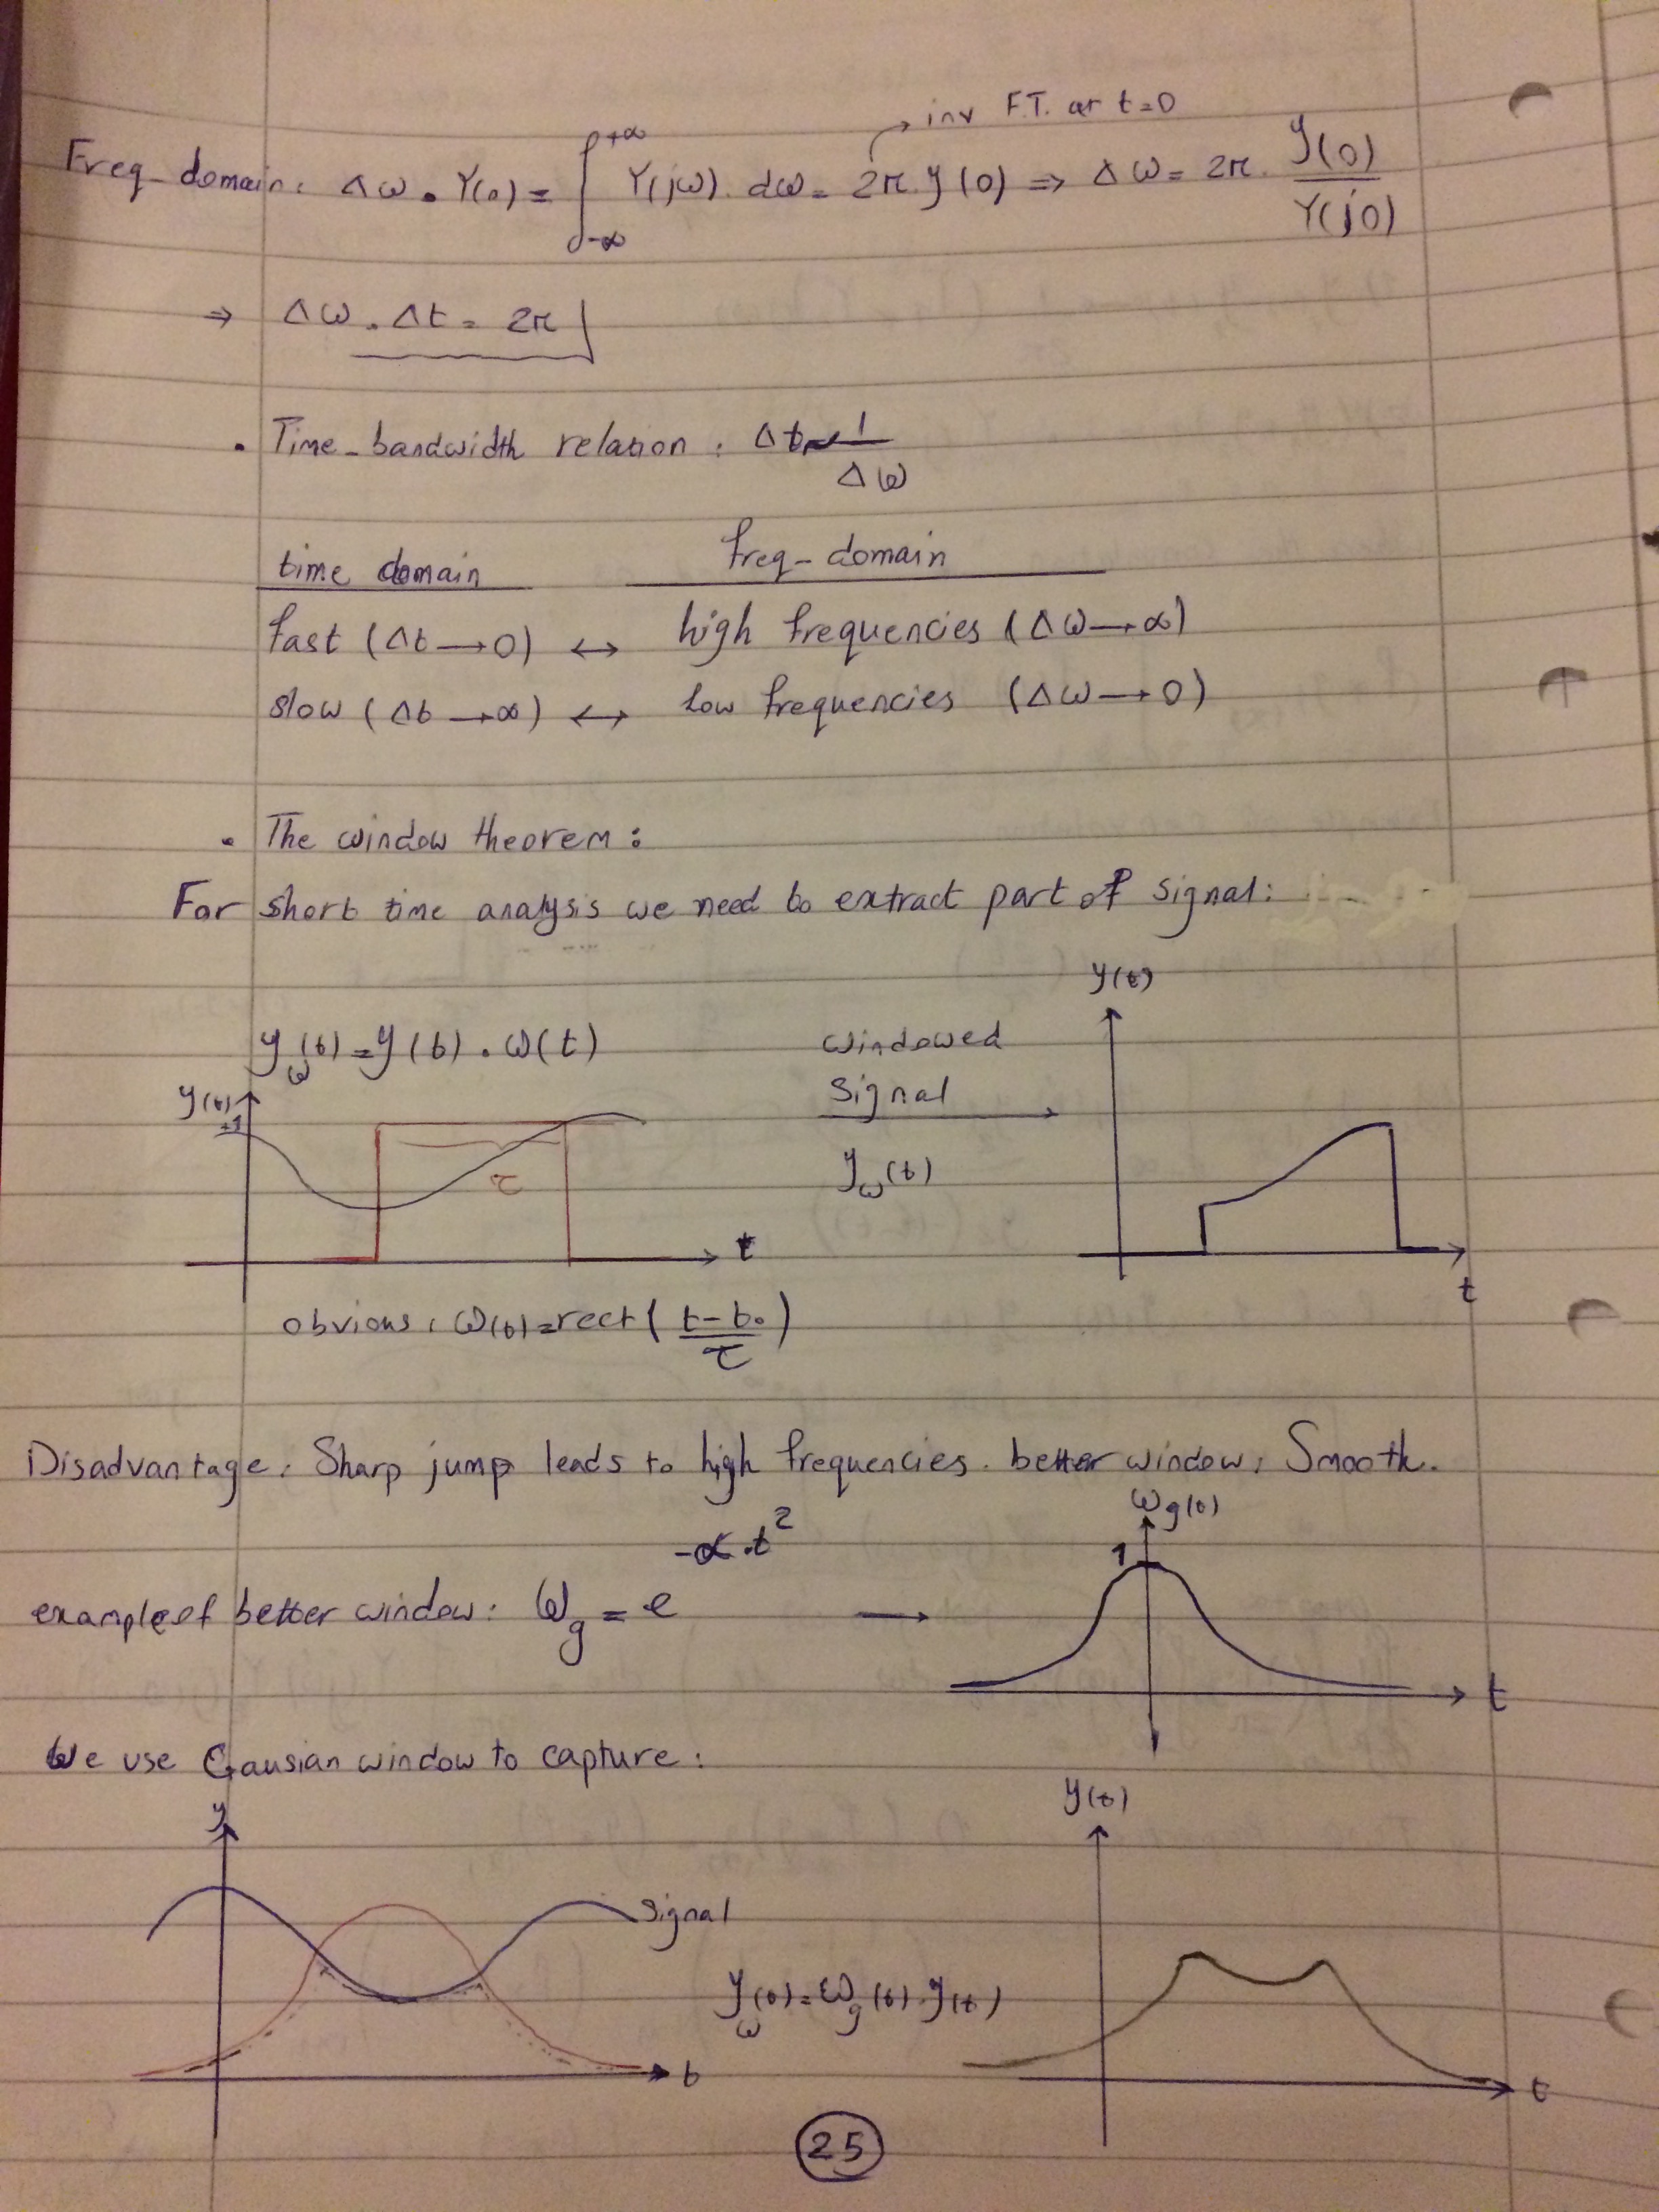 inv F.T. at t=0
Freq-domain: Δω . Y(0) = ∫_{-∞}^{+∞} Y(jω) . dω = 2π y(0) ⇒ Δω = 2π . y(0)/Y(j0)
⇒ Δω . Δt = 2π
• Time-bandwidth relation: Δt ~ 1/Δω
time domain freq-domain
fast (Δt → 0) ↔ high frequencies (Δω → ∞)
slow (Δt → ∞) ↔ low frequencies (Δω → 0)
• The window theorem:
For short time analysis we need to extract part of signal:
y(t)
y_ω(t) = y(t) . ω(t)
windowed
signal
y_ω(t)
y(t)
+1
τ
t
t
obvious: ω(t) = rect( (t-t₀)/τ )
Disadvantage: Sharp jump leads to high frequencies. better window: Smooth.
ω_g(t)
1
example of better window: ω_g = e^{-α.t²} →
t
We use Gausian window to capture:
y
y(t)
signal
y_ω(t) = ω_g(t) . y(t)
t
t
25